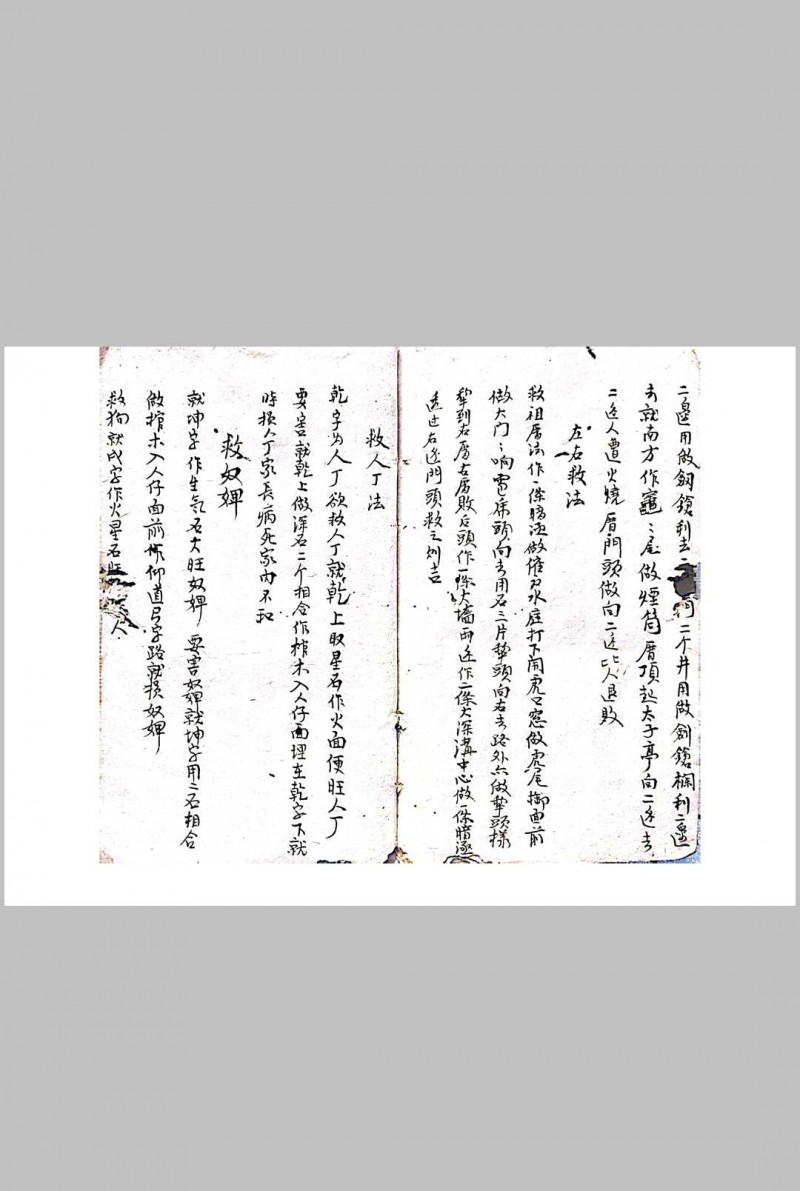 二邉用做劔鎗利去二 二个井用做劍鎗欄利二邉
去就南方作竈竈尾做煙筒厝頂起太子亭向二边去
二边人遭火燒厝門頭做向二边比人退敗
左右救法
救祖厝法作一條暗涵做催刀水庭打下開虎口窓做虎尾 面前
做大门门响電床頭向去用石三片墊頭向右去路外六做墊頭樣
到右厝左房敗后頭作一條大墻两边作二條大深溝中心做一條暗涵
透过右边門頭救之則吉
救人丁法
乾字为人丁欲救人丁就乾上取星石作火面便旺人丁
要害就乾上做深石二个相合作棺木入人仔面埋在乾字下就
時損人丁家長病死家内不和
救奴婢
就坤字作生气石大旺奴婢 要害奴婢就坤字用二石相合
做棺木入人仔面前作仰道弓字路就損奴婢
救狗就戌字作火星石旺 人